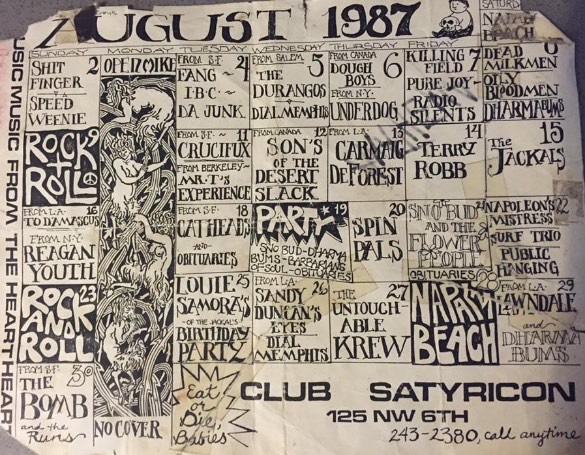 AUGUST 1987
SATURD
NAPALM
BEACH
SUNDAY MONDAY TUESDAY WEDNESDAY THURSDAY FRIDAY
MUSIC MUSIC FROM THE HEART HEART
SHIT 2
FINGER
SPEED
WEENIE
OPEN MIKE
FROM S.F. 4
FANG ~
I·B·C ~
DA JUNK
FROM SALEM 5
THE
DURANGOS
DIAL MEMPHIS
FROM CANADA 6
DOUGH
BOYS
FROM N.Y.
UNDERDOG
KILLING 7
FIELD
PURE JOY
RADIO
SILENTS
DEAD
MILKMEN
OILY
BLOODMEN
DHARMA BUMS
9
ROCK
+
ROLL
FROM S.F. ~ 11
CRUCIFIX
FROM BERKELEY~
MR·T'S
EXPERIENCE
FROM CANADA 12
SON'S
OF THE
DESERT
SLACK
FROM L.A. 13
CARMAIG
DEFOREST
14
TERRY
ROBB
15
The
JACKALS
FROM L.A. 16
TO DAMASCUS
FROM N.Y.
REAGAN
YOUTH
FROM S.F. 18
CAT HEADS
AND
OBITUARIES
PARTY 19
SNO BUD-DHARMA
BUMS-BARBARIANS
OF SOUL-OBITUARIES
20
SPIN
PALS
SNO BUD
AND THE
FLOWER
PEOPLE
OBITUARIES
NAPOLEON'S 22
MISTRESS
SURF TRIO
PUBLIC
HANGING
23
ROCK
AND
ROLL
LOUIE 25
SAMORA'S
-OF THE JACKALS
BIRTHDAY
PARTY
FROM L.A. 26
SANDY
DUNCAN'S
EYES
DIAL
MEMPHIS
THE 27
UNTOUCH-
ABLE
KREW
NAPALM
BEACH
FROM L.A. 29
LAWNDALE
and
DHARMA
BUMS
FROM S.F. 30
THE
BOMB
and the
Runs
NO COVER
Eat
or
Die,
Babies
CLUB SATYRICON
125 NW 6TH
243-2380, call anytime